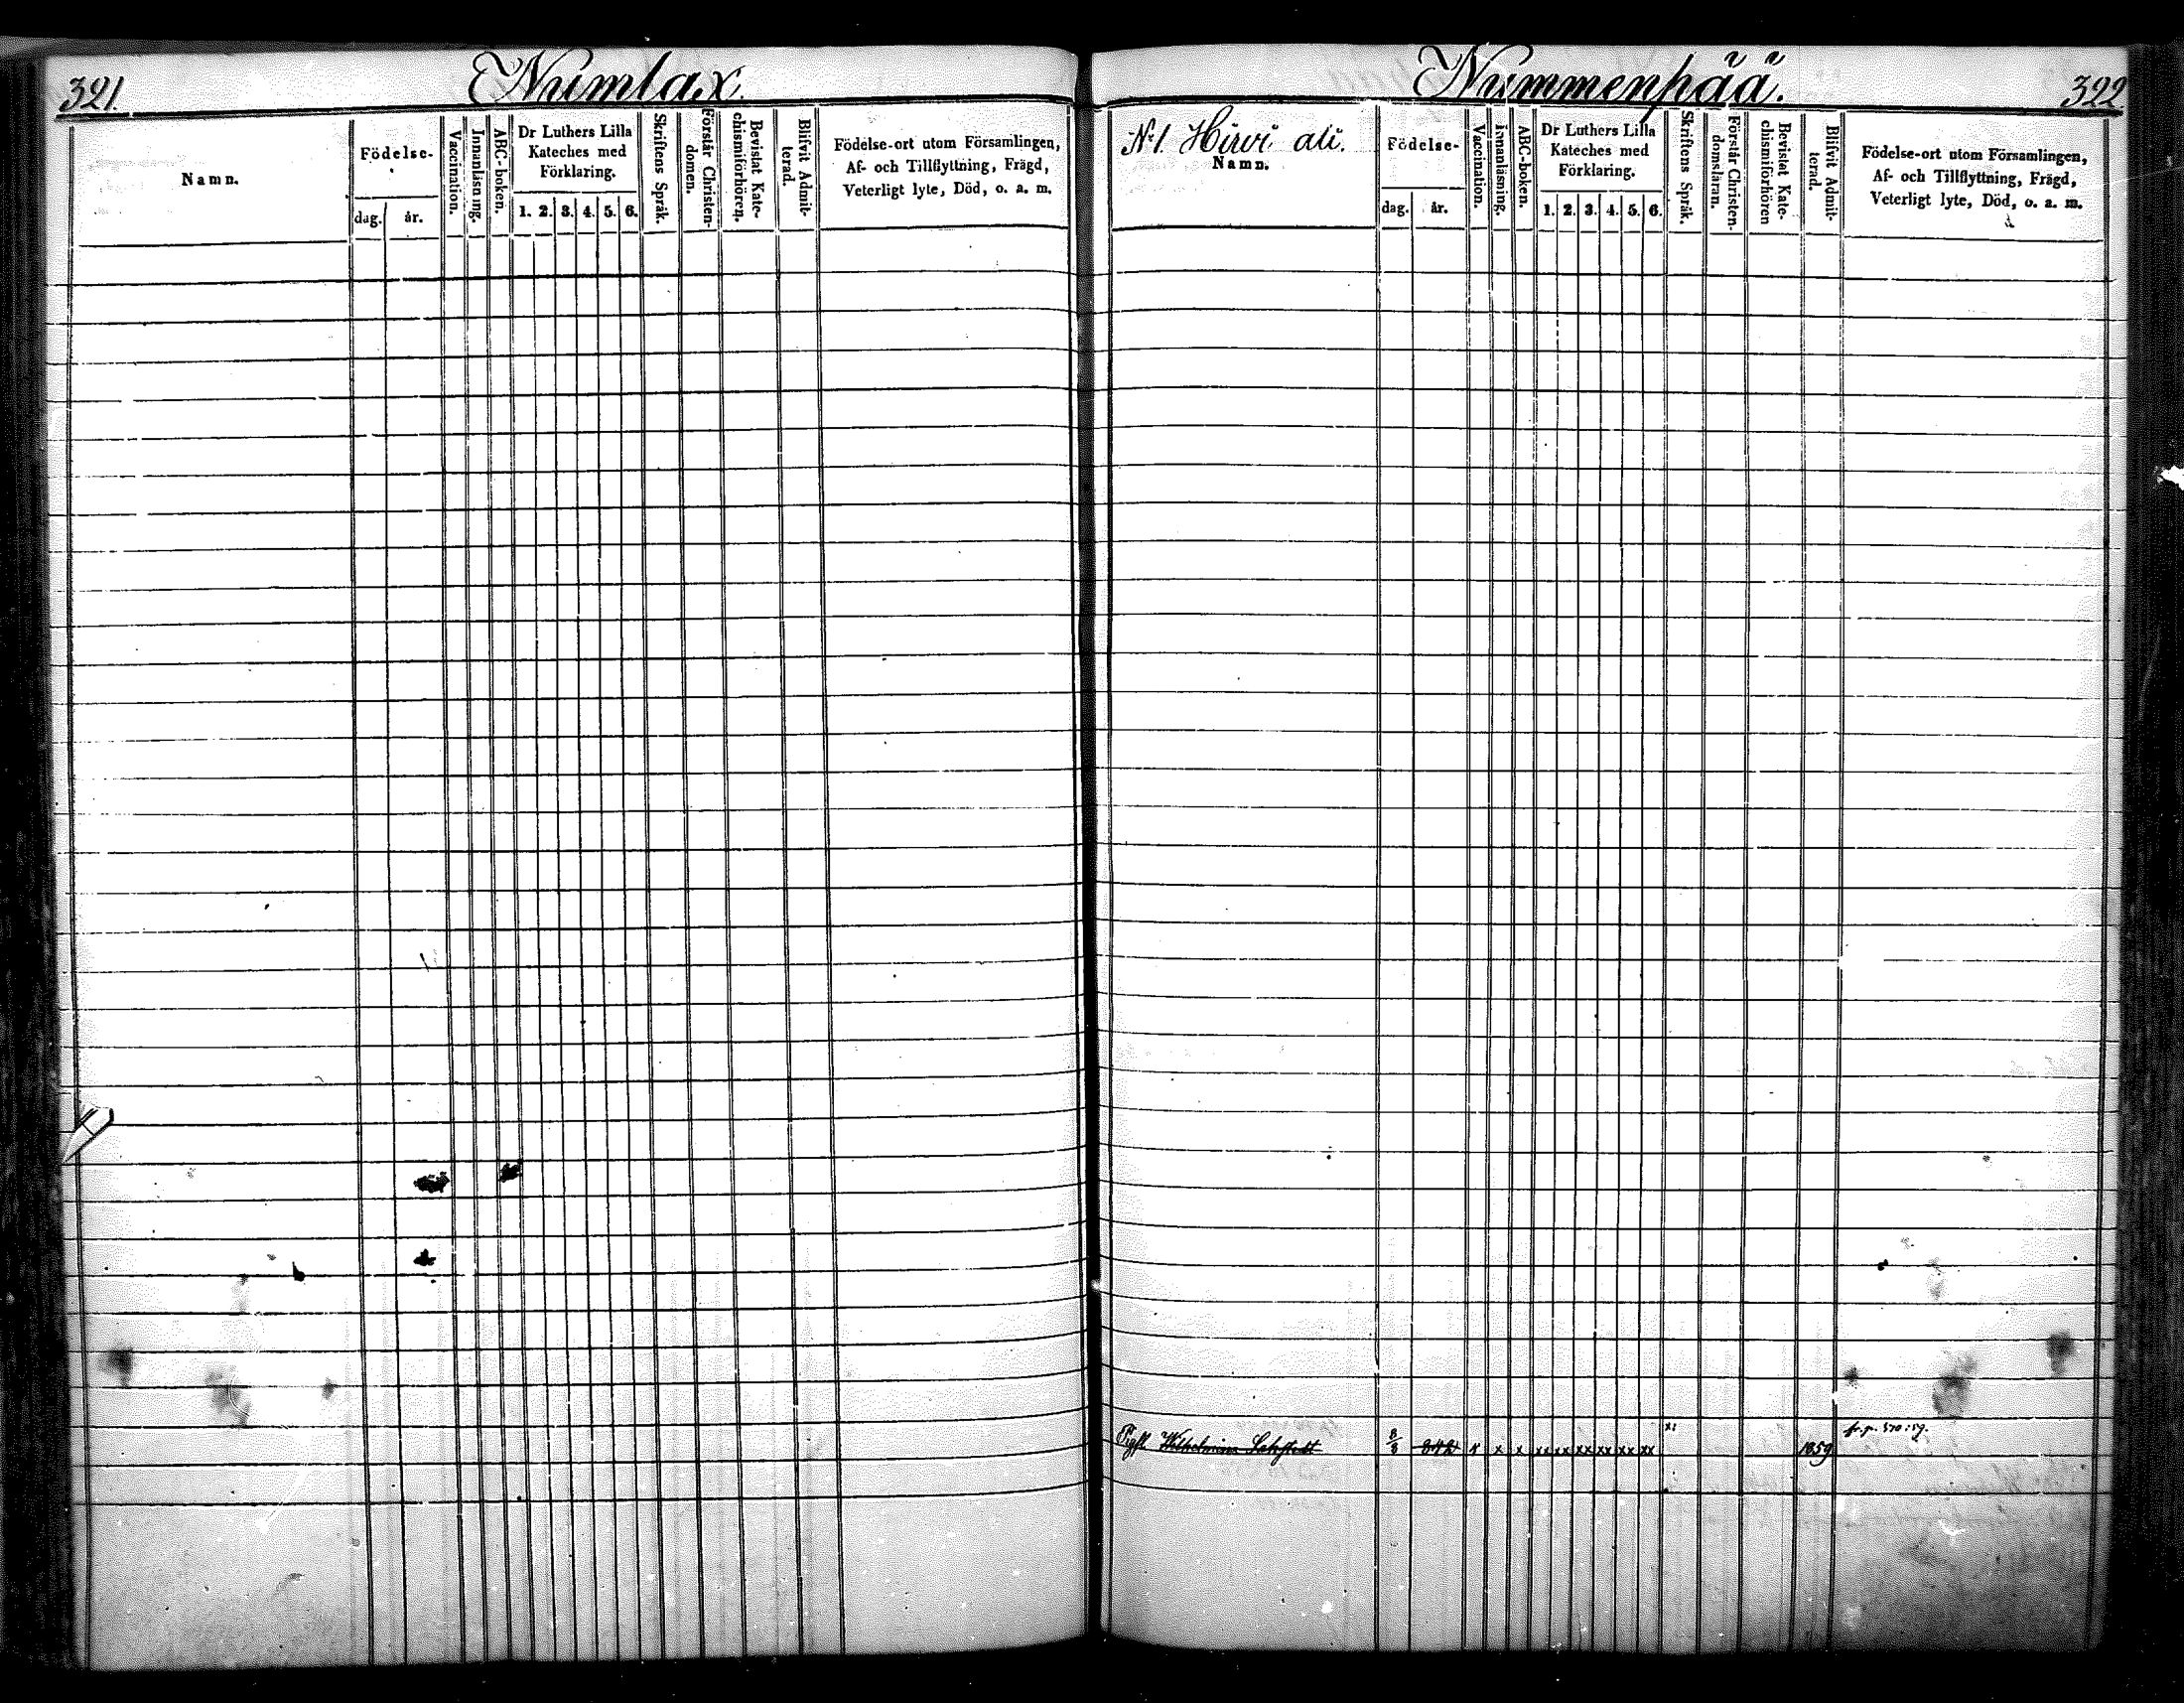 321.
Numlax.
Namn.
Födelse-
dag. år.
Vaccination.
Innanläsning.
ABC-boken.
Dr Luthers Lilla
Kateches med
Förklaring.
1. 2. 3. 4. 5. 6.
Skriftens Språk.
Förstår Christen-
domen.
Bevistat Kate-
chismiförhören.
Blifvit Admit-
terad.
Födelse-ort utom Församlingen,
Af- och Tillflyttning, Frägd,
Veterligt lyte, Död, o. a. m.
Nummenpää.
322
N:1. Hirvi ali.
Namn.
Födelse-
dag. år.
Vaccination.
Innanläsning.
ABC-boken.
Dr Luthers Lilla
Kateches med
Förklaring.
1. 2. 3. 4. 5. 6.
Skriftens Språk.
Förstår Christen-
domsläran.
Bevistat Kate-
chismiförhören
Blifvit Admit-
terad.
Födelse-ort utom Församlingen,
Af- och Tillflyttning, Frägd,
Veterligt lyte, Död, o. a. m.
Wilhelmina 8/8 842 x x x xx xx xx xx xx xx 1859 fr. p. 570:59.